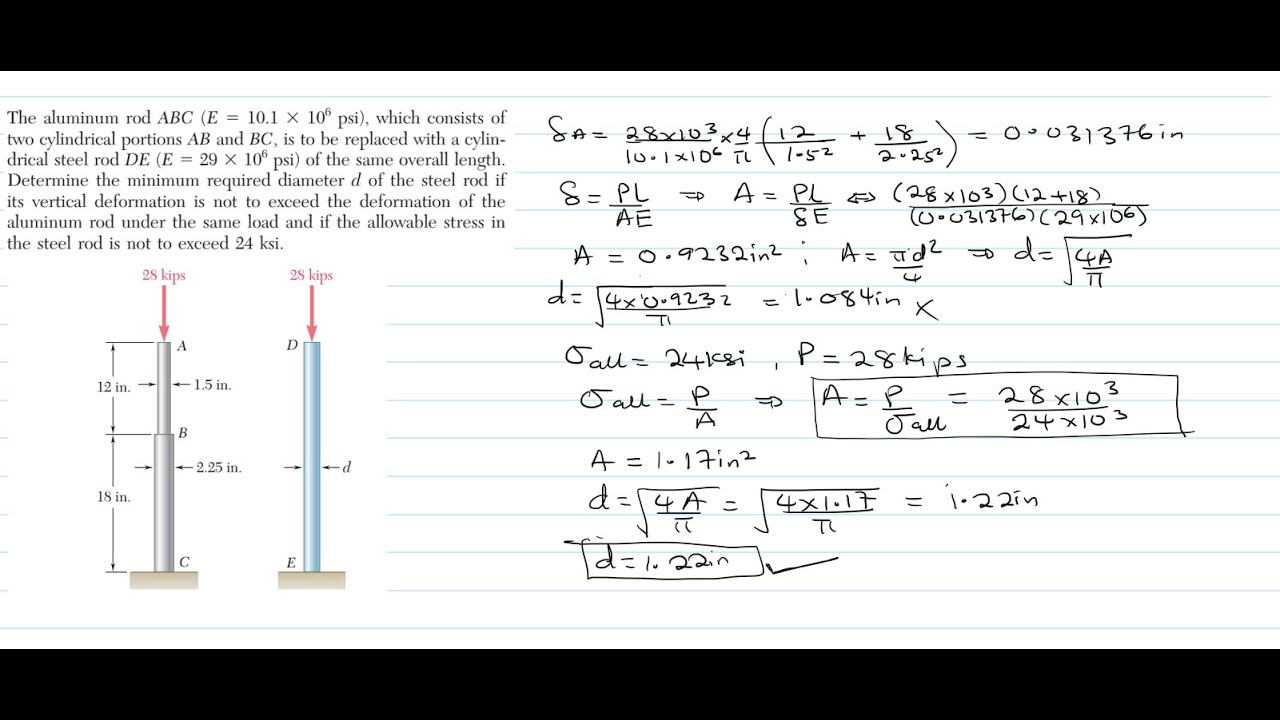 The aluminum rod ABC (E = 10.1 × 10⁶ psi), which consists of
two cylindrical portions AB and BC, is to be replaced with a cylin-
drical steel rod DE (E = 29 × 10⁶ psi) of the same overall length.
Determine the minimum required diameter d of the steel rod if
its vertical deformation is not to exceed the deformation of the
aluminum rod under the same load and if the allowable stress in
the steel rod is not to exceed 24 ksi.
28 kips
28 kips
A
D
12 in.
1.5 in.
B
2.25 in.
d
18 in.
C
E
δA = 28×10³/10.1×10⁶ × 4/π (12/1.5² + 18/2.25²) = 0.031376 in
δ = PL/AE ⇒ A = PL/δE ⇔ (28×10³)(12+18)/(0.031376)(29×10⁶)
A = 0.9232 in² ; A = πd²/4 ⇒ d = √(4A/π)
d = √(4×0.9232/π) = 1.084in ×
σall = 24ksi , P = 28kips
σall = P/A ⇒ A = P/σall = 28×10³/24×10³
A = 1.17in²
d = √(4A/π) = √(4×1.17/π) = 1.22in
d = 1.22in ✓